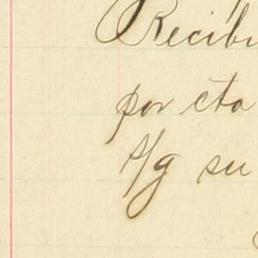 Recibi
por cta
S/g su